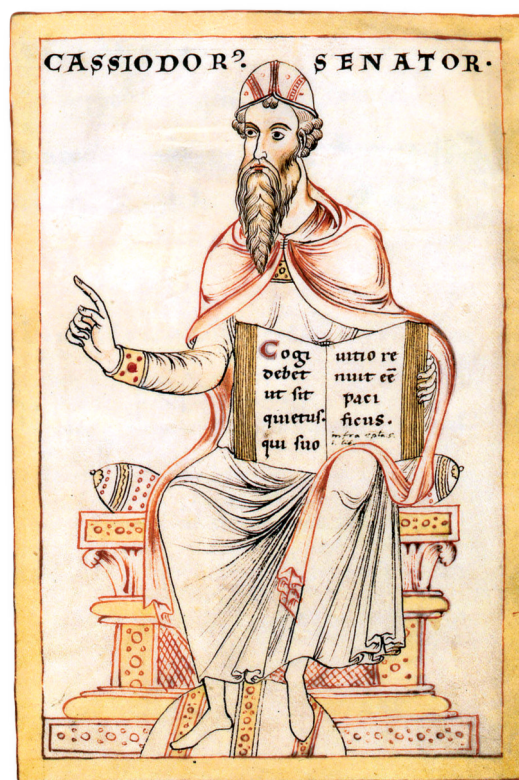 CASSIODOR⁹. SENATOR·
Cogi
debet
ut sit
quietus.
qui suo
uitio re
nuit eē
paci
ficus.
infra epła